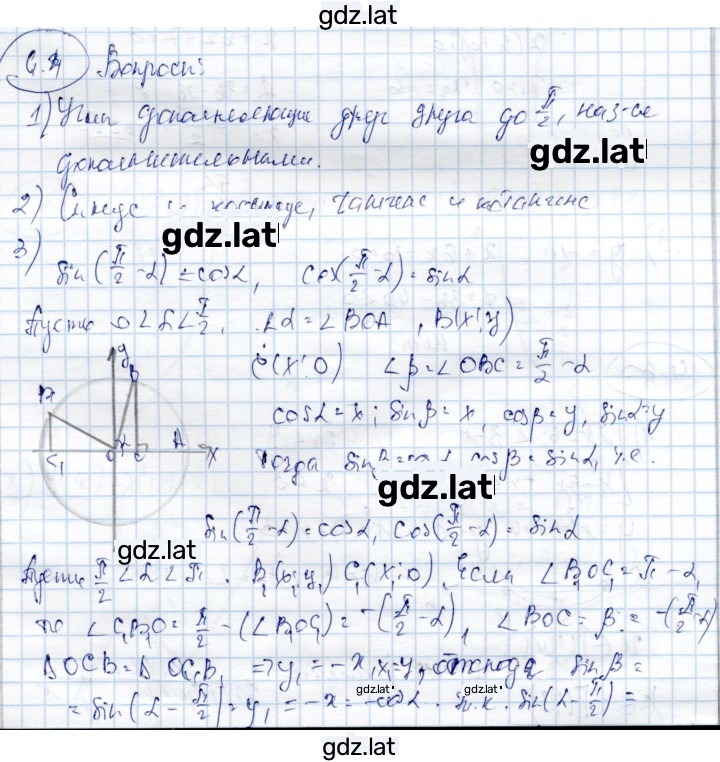 gdz.lat
Q.4 Вопросы:
1) Углы дополняющие друг друга до π/2, наз-ся
gdz.lat
дополнительными.
2) Синус и косинус, тангенс и котангенс
gdz.lat
3) sin(π/2 - α) = cosα, cos(π/2 - α) = sinα
Пусть 0 < α < π/2. ∠α = ∠BOA, B(x; y)
C(x; 0) ∠β = ∠OBC = π/2 - α
cosα = x; sinβ = x, cosβ = y, sinα = y
y B O C A x C₁
Тогда sinβ = cosβ = sinα, т.е.
gdz.lat
sin(π/2 - α) = cosα, cos(π/2 - α) = sinα
gdz.lat
Пусть π/2 < α < π. B₁(x₁; y₁) C₁(x₁; 0). Если ∠B₁OC₁ = π - α,
то ∠C₁B₁O = π/2 - (∠B₁OC₁) = -(π/2 - α), ∠BOC = β = -(π/2 - α)
ΔOCB = ΔOC₁B₁ => y₁ = -x, x₁ = -y, отсюда sinβ =
gdz.lat gdz.lat
= sin(α - π/2) = y₁ = -x = -cosα. т.к. sin(α - π/2) =
gdz.lat